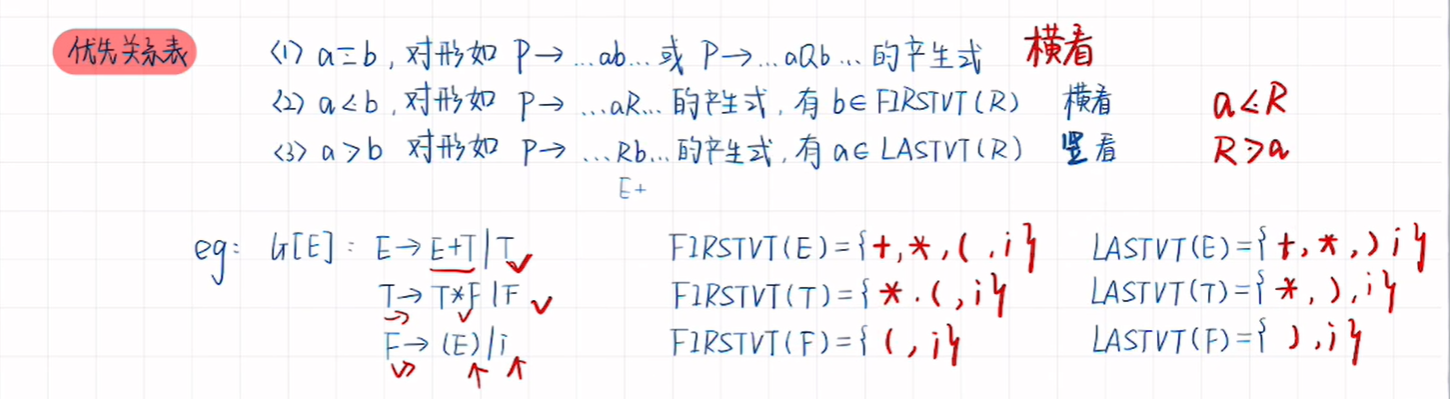 优先关系表
<1> a≡b, 对形如 P→...ab... 或 P→...aQb... 的产生式 横看
<2> a⋖b, 对形如 P→ ...aR... 的产生式, 有 b∈FIRSTVT(R) 横看 a⋖R
<3> a⋗b 对形如 P→ ...Rb... 的产生式, 有 a∈LASTVT(R) 竖看 R⋗a
E+
eg: G[E]: E→E+T|T FIRSTVT(E)={+,*,(,i} LASTVT(E)={+,*,) i}
T→T*F|F FIRSTVT(T)={*.(,i} LASTVT(T)={*,),i}
F→(E)|i FIRSTVT(F)={(,i} LASTVT(F)={),i}